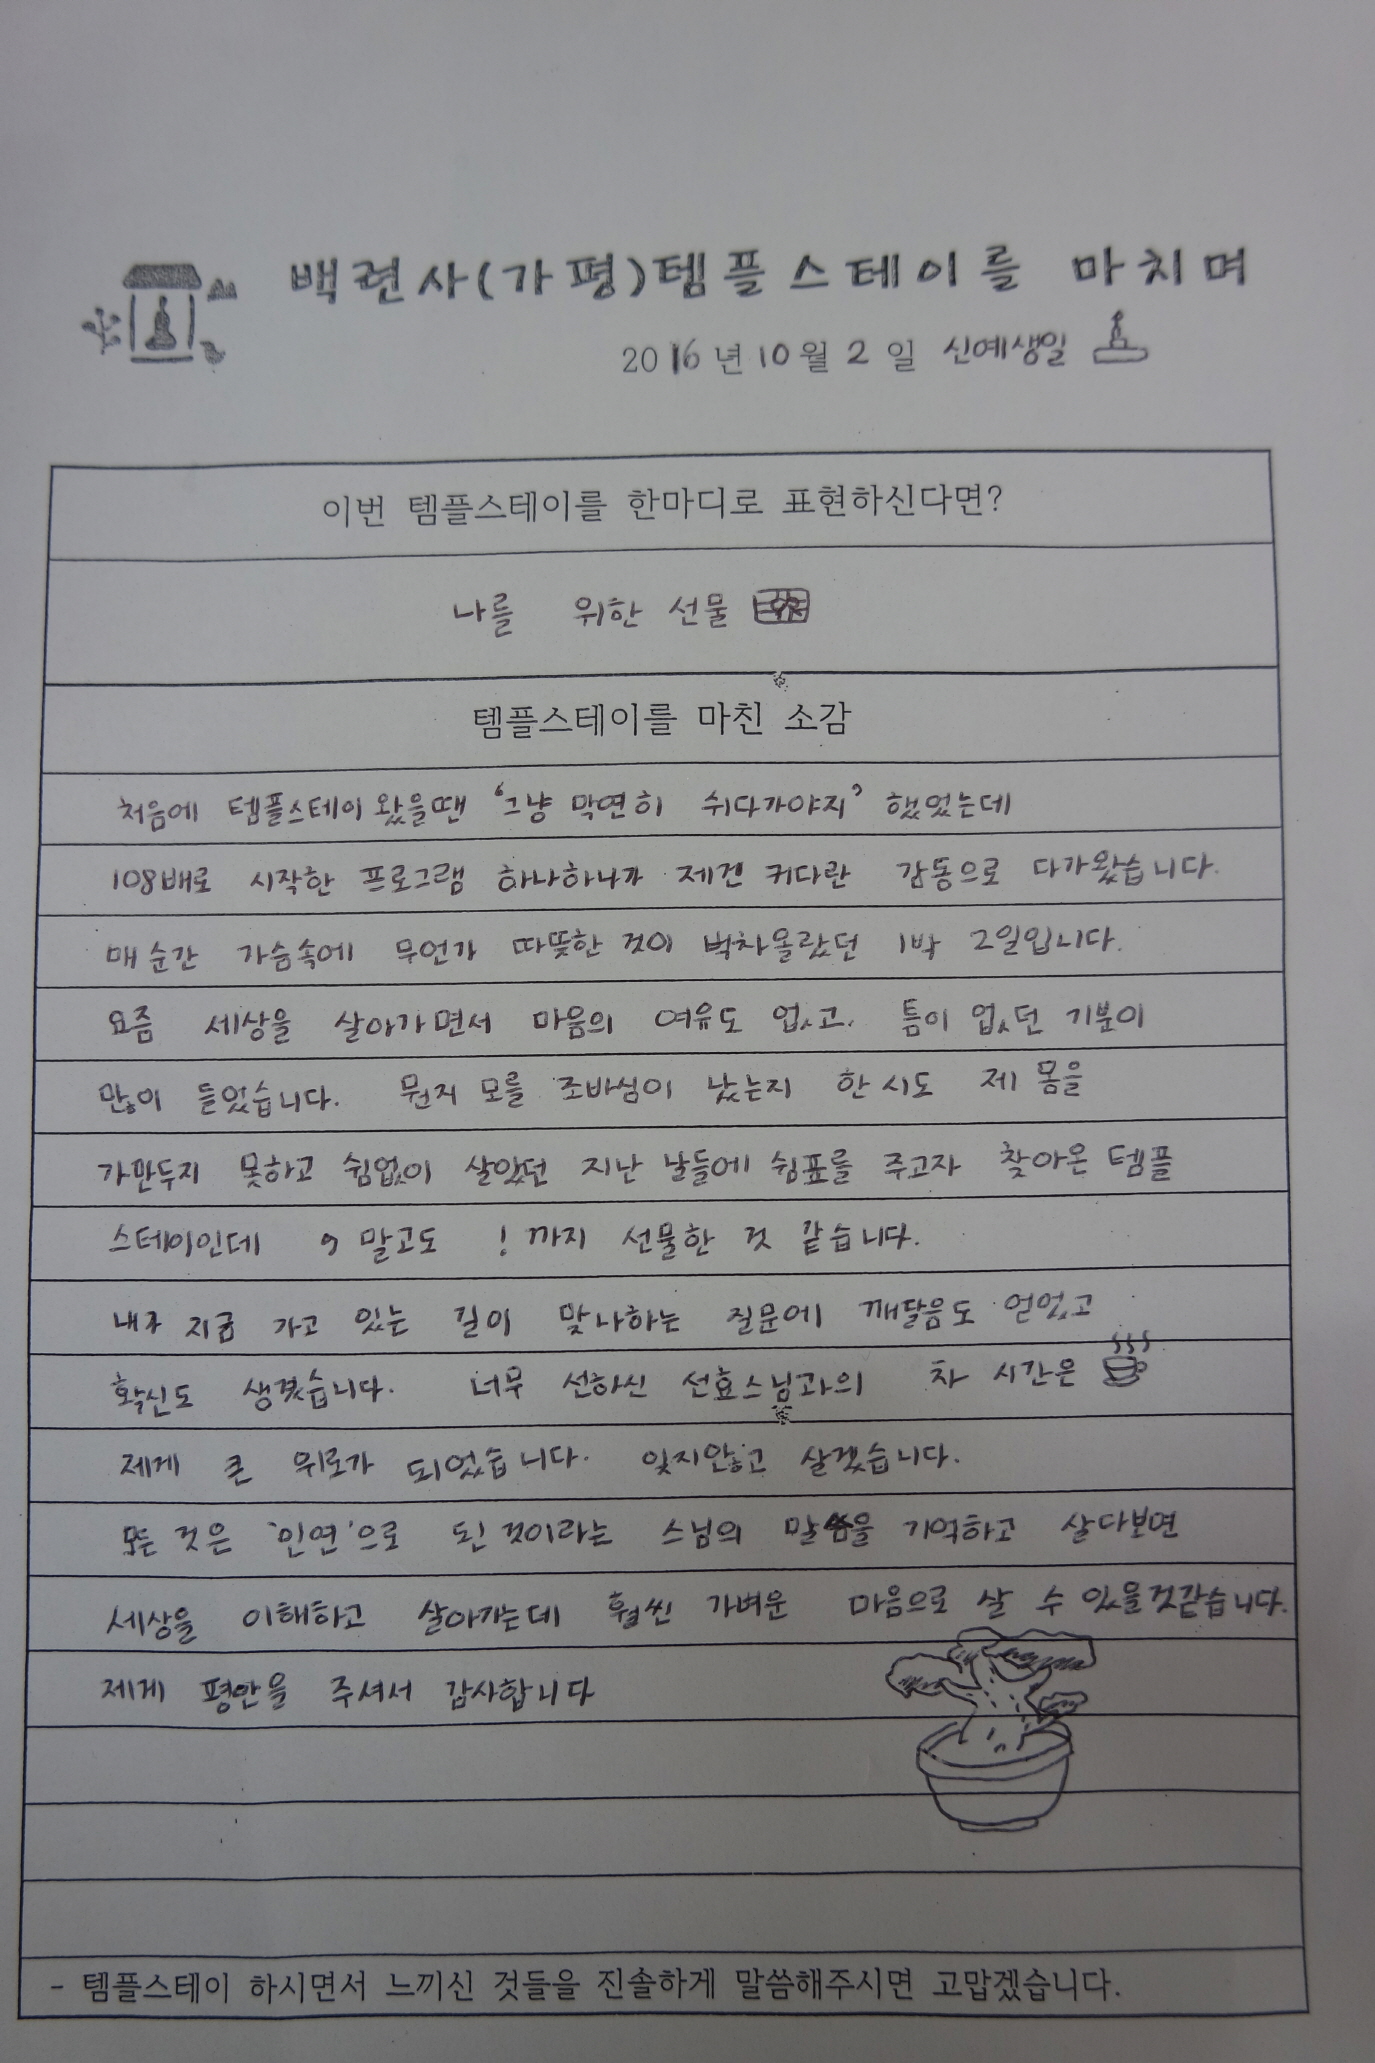 백련사(가평)템플스테이를 마치며
2016년 10월 2일 신예생일
이번 템플스테이를 한마디로 표현하신다면?
나를 위한 선물
템플스테이를 마친 소감
처음에 템플스테이 왔을땐 '그냥 막연히 쉬다가야지' 했었는데
108배로 시작한 프로그램 하나하나가 제겐 커다란 감동으로 다가왔습니다.
매 순간 가슴속에 무언가 따뜻한 것이 벅차올랐던 1박 2일입니다.
요즘 세상을 살아가면서 마음의 여유도 없고, 틈이 없던 기분이
많이 들었습니다. 뭔지 모를 조바심이 났는지 한시도 제 몸을
가만두지 못하고 쉼없이 살았던 지난 날들에 쉼표를 주고자 찾아온 템플
스테이인데 , 말고도 ! 까지 선물한 것 같습니다.
내가 지금 가고 있는 길이 맞나하는 질문에 깨달음도 얻었고
확신도 생겼습니다. 너무 선하신 선효스님과의 차 시간은
제게 큰 위로가 되었습니다. 잊지않고 살겠습니다.
모든 것은 '인연'으로 된 것이라는 스님의 말씀을 기억하고 살다보면
세상을 이해하고 살아가는데 훨씬 가벼운 마음으로 살 수 있을것같습니다.
제게 평안을 주셔서 감사합니다
- 템플스테이 하시면서 느끼신 것들을 진솔하게 말씀해주시면 고맙겠습니다.